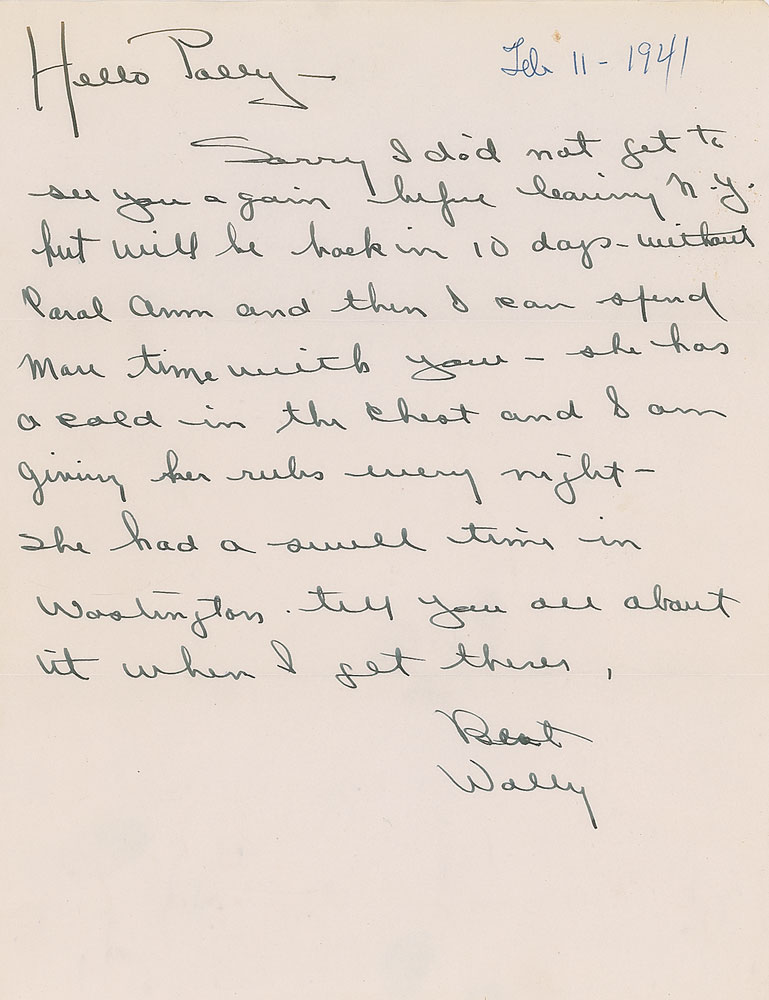 Hello Pally —
Feb 11 - 1941
Sorry I did not get to
see you again before leaving N.Y.
but will be back in 10 days - without
Carol Ann and then I can spend
more time with you - she has
a cold in the chest and I am
giving her rubs every night -
She had a swell time in
Washington. tell you all about
it when I get there,
Best
Wally